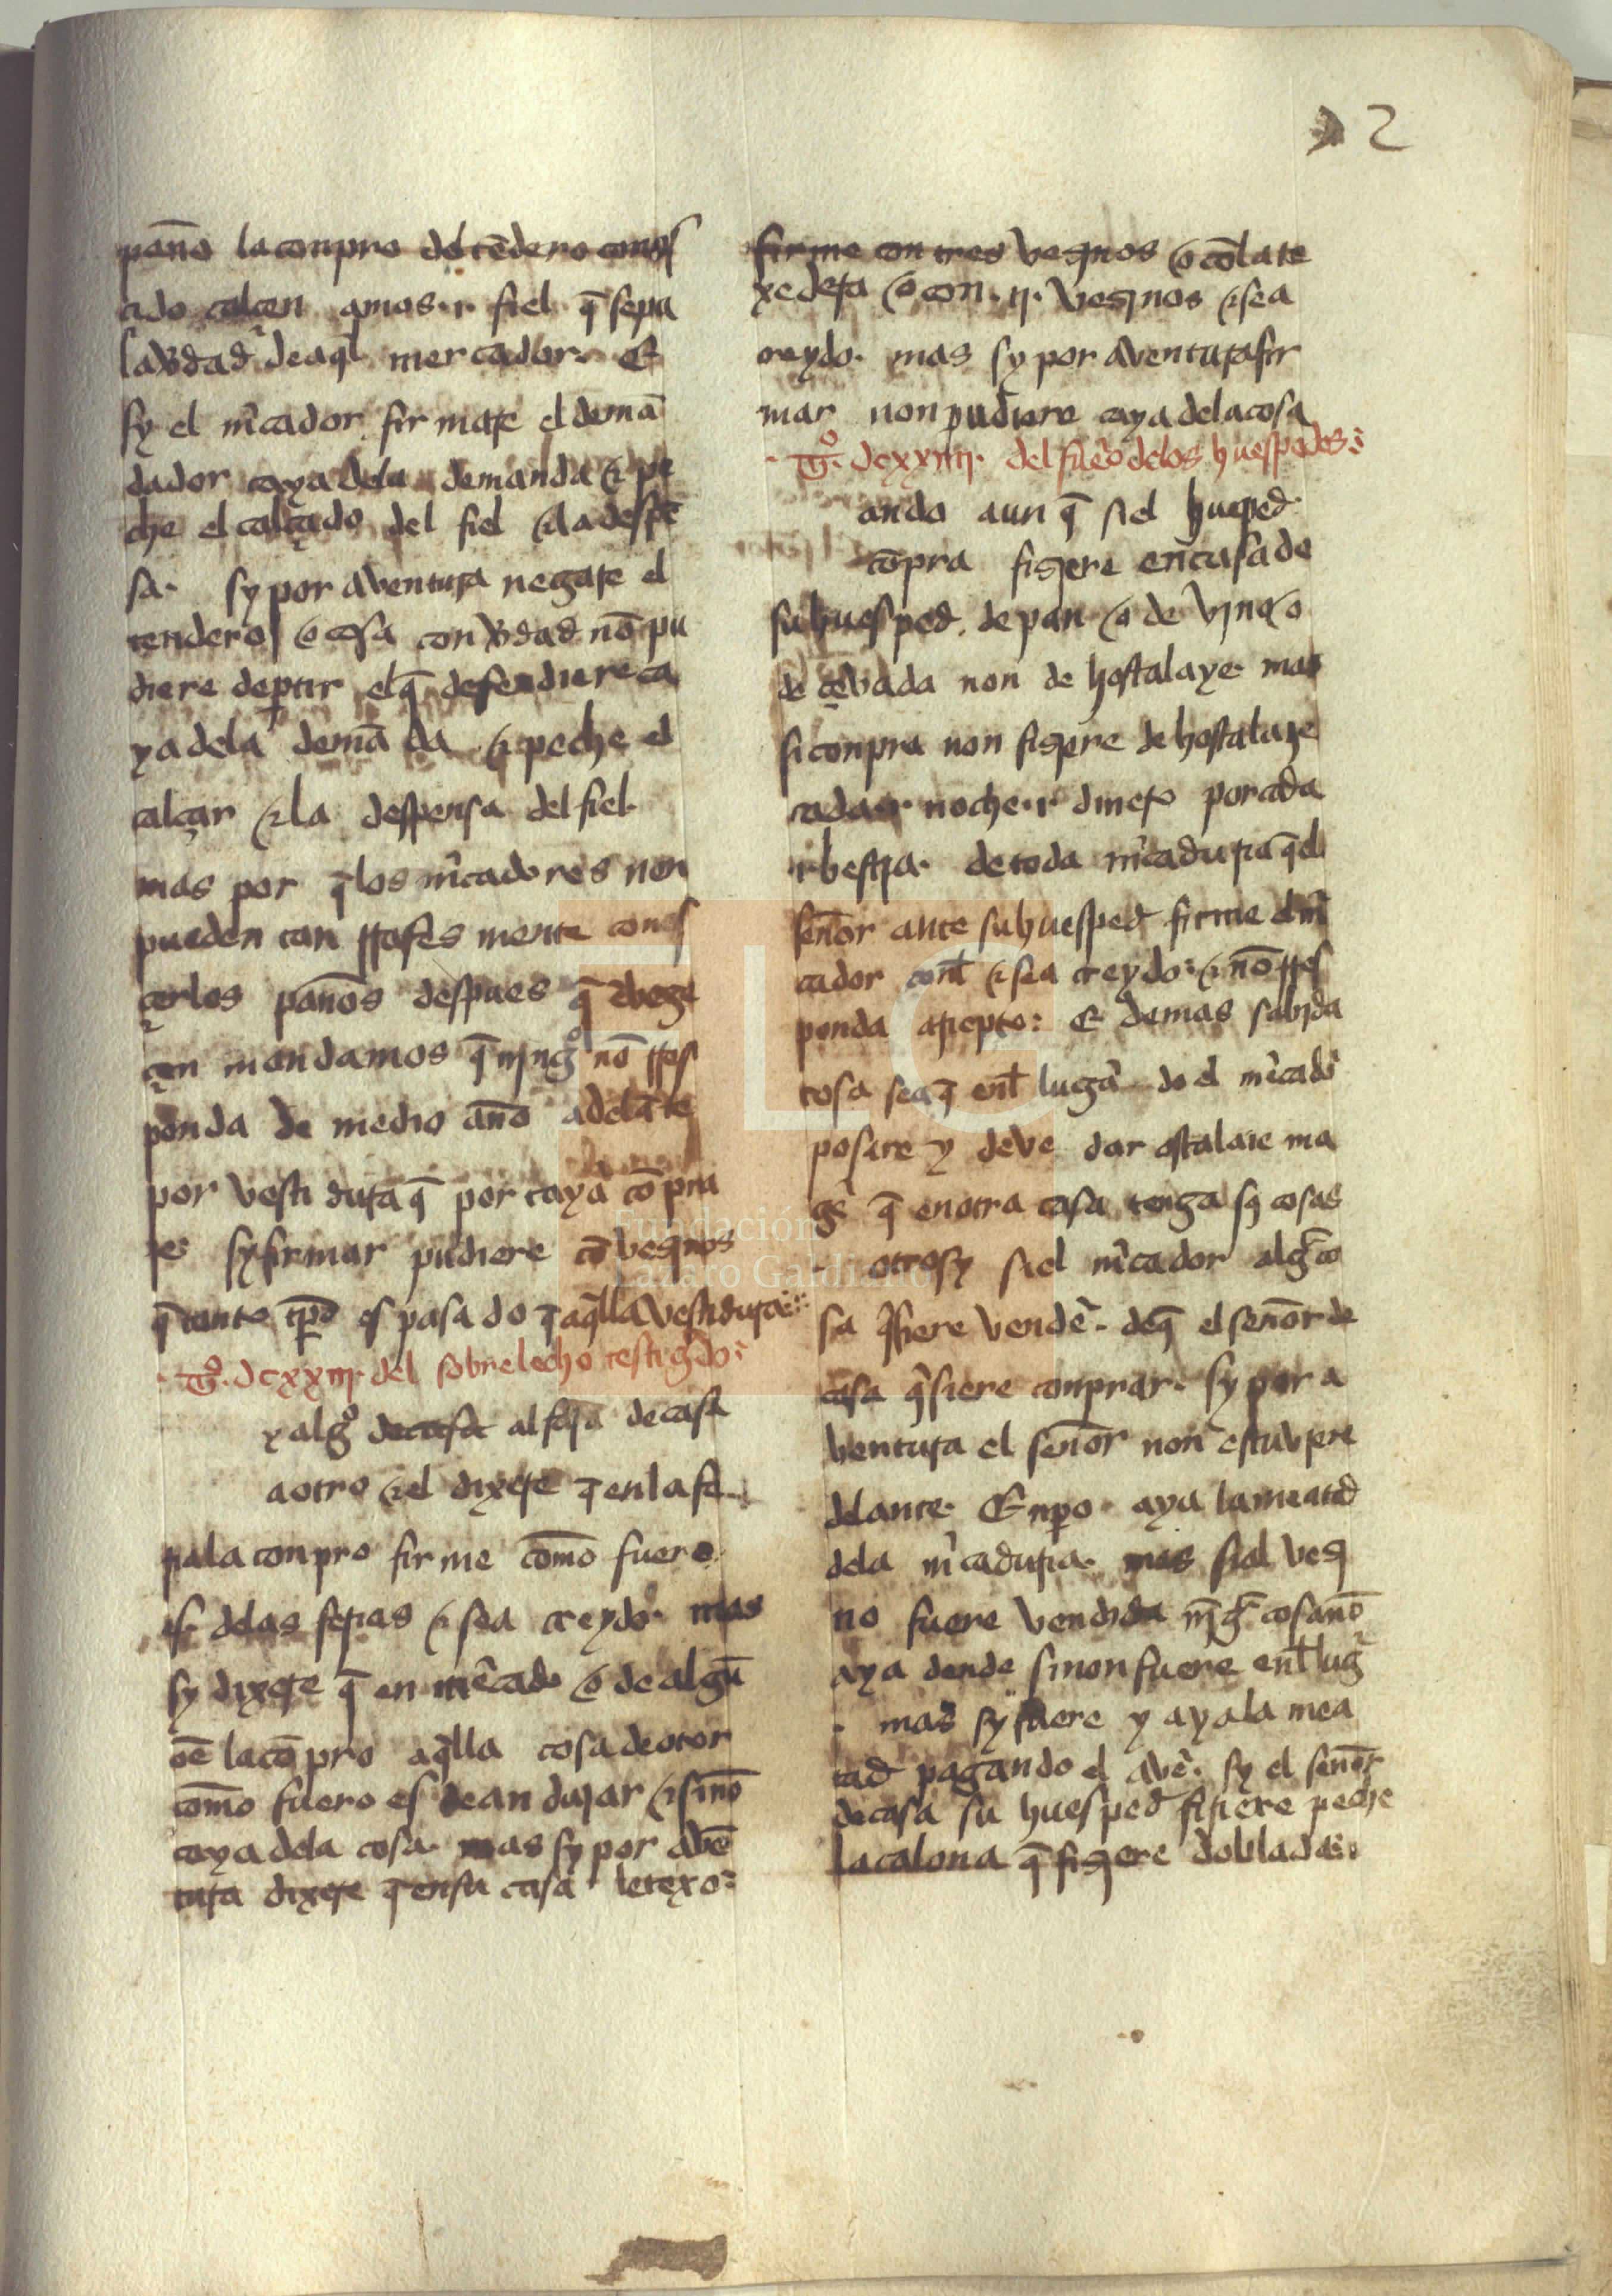 2
pan̄o la conpro del tēdero conos
çido calçen amos .i. fiel q̄ sepa
la v̄dad de aql̄ mercador. Et
sy el m̄cador firmare el demā
dador caya dela demanda & pe
che el calçado del fiel & la despē
sa. sy por aventura negare el
tendero / o casa con v̄dad nō pu
diere deꝑtir elq̄ defendiere ca
ya dela demāda & peche el
calçar & la despensa del fiel.
mas por q̄ los m̄cadores non
pueden tan rrafes mente conos
çer los pan̄os despues q̄
mandamos q̄ ningº nō rres
ponda de medio an̄o adelāte
por vestidura q̄ por caya cōpra
re. sy firmar pudiere cō vezinos
q̄ tanto tp̄o es pasado q̄ aq̄lla vestidura
. Tº. dcxxiii. del sobrelecho testigado
y algº de casa al fija de casa
a otro & el dixere q̄ en la fe
ria la conpro firme cōmo fuero
es delas ferias & sea creydo. mas
sy dixere q̄ en mercado / o de algū
oē la cōpro aq̄lla cosa de otor
cōmo fuero es de an dujar & sinō
caya dela cosa. mas sy por avē
tura dixere q̄ en su casa le texo:
firme con tres vezinos / o cō la te
xedera / o con .ii. vezinos & sea
creydo. mas sy por aventura fir
mar non pudiere caya dela cosa
. Tº. dcxxiiii. del fuero delos huespedes:
ando aun q̄ si el huesped
cōpra fiziere en casa de
su huesped. de pan / o de vino / o
de çevada non de hostalaye. mas
si conpra non fiziere de hostalaje
cada .i. noche .i. dinero por cada
.i. bestia. de toda m̄caduria q̄ el
sen̄or ante su huesped firme el m̄
cador conl̄ & sea creydo: & nō rres
ponda a rriepto: Et demas sabida
cosa sea q̄ enl̄ lugar do el m̄cador
posare y deve dar ostalaie ma
gr̄ q̄ en otra casa tenga sus cosas
. otrosy si el m̄cador algª co
sa q̄siere vender. de q̄ el sen̄or de
casa q̄siere conprar. sy por a
ventura el sen̄or non estuviere
delante. Enꝑo aya la meatad
dela m̄caduria. mas si al vezi
no fuere vendida ningª cosa nō
aya dende sinon fuere enl̄ lugar
. mas sy fuere y aya la mea
tad pagando el aver. sy el sen̄or
de casa su huesped firiere peche
la calona q̄ fiziere doblada:.
FLG
Fundación
Lázaro Galdiano